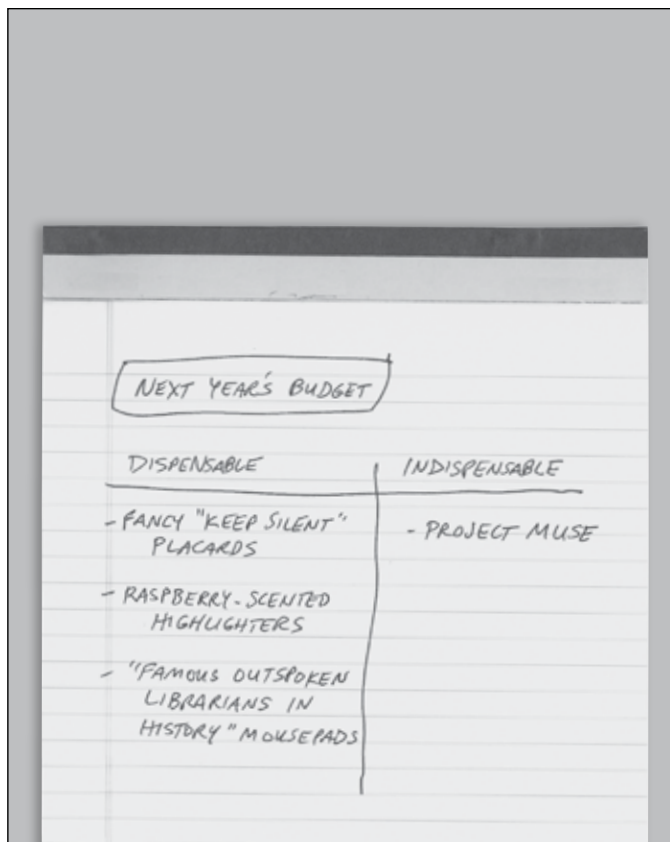 NEXT YEAR'S BUDGET
DISPENSABLE
- FANCY "KEEP SILENT"
PLACARDS
- RASPBERRY-SCENTED
HIGHLIGHTERS
- "FAMOUS OUTSPOKEN
LIBRARIANS IN
HISTORY" MOUSEPADS
INDISPENSABLE
- PROJECT MUSE